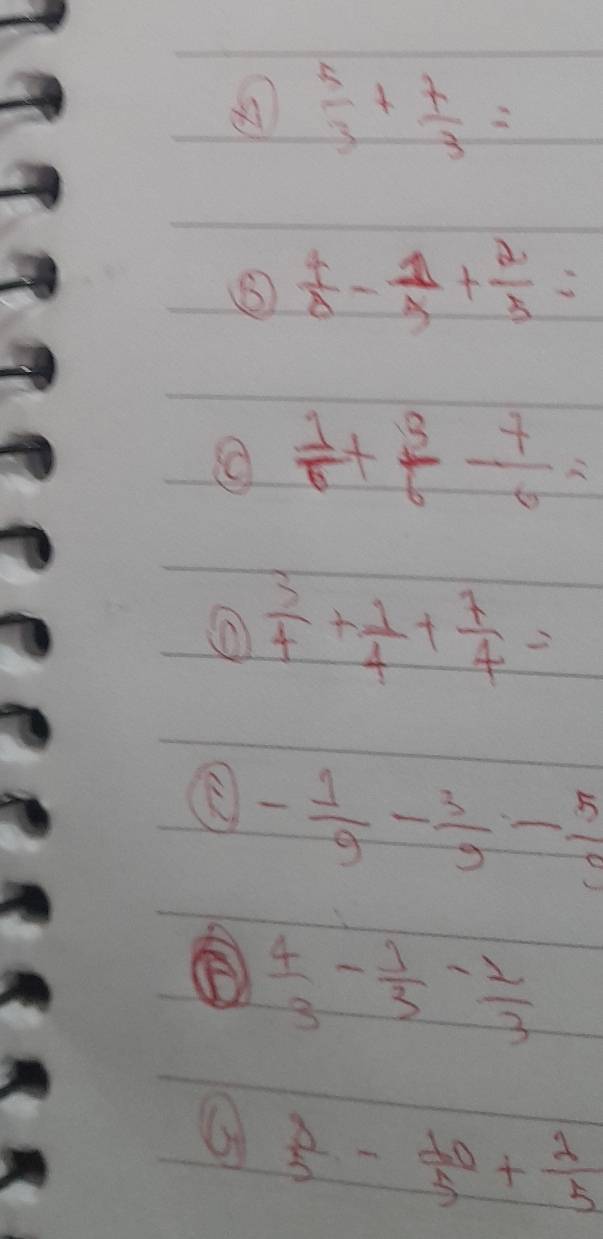 Ⓐ 5/3 + 7/3 =
Ⓑ 4/5 - 1/5 + 2/5 =
Ⓒ 1/6 + 3/6 - 7/6 =
Ⓓ 3/4 + 1/4 + 7/4 =
Ⓔ - 1/9 - 3/9 - 5/9
Ⓕ 4/3 - 1/3 - 2/3
Ⓖ /5 - 10/5 + 2/5